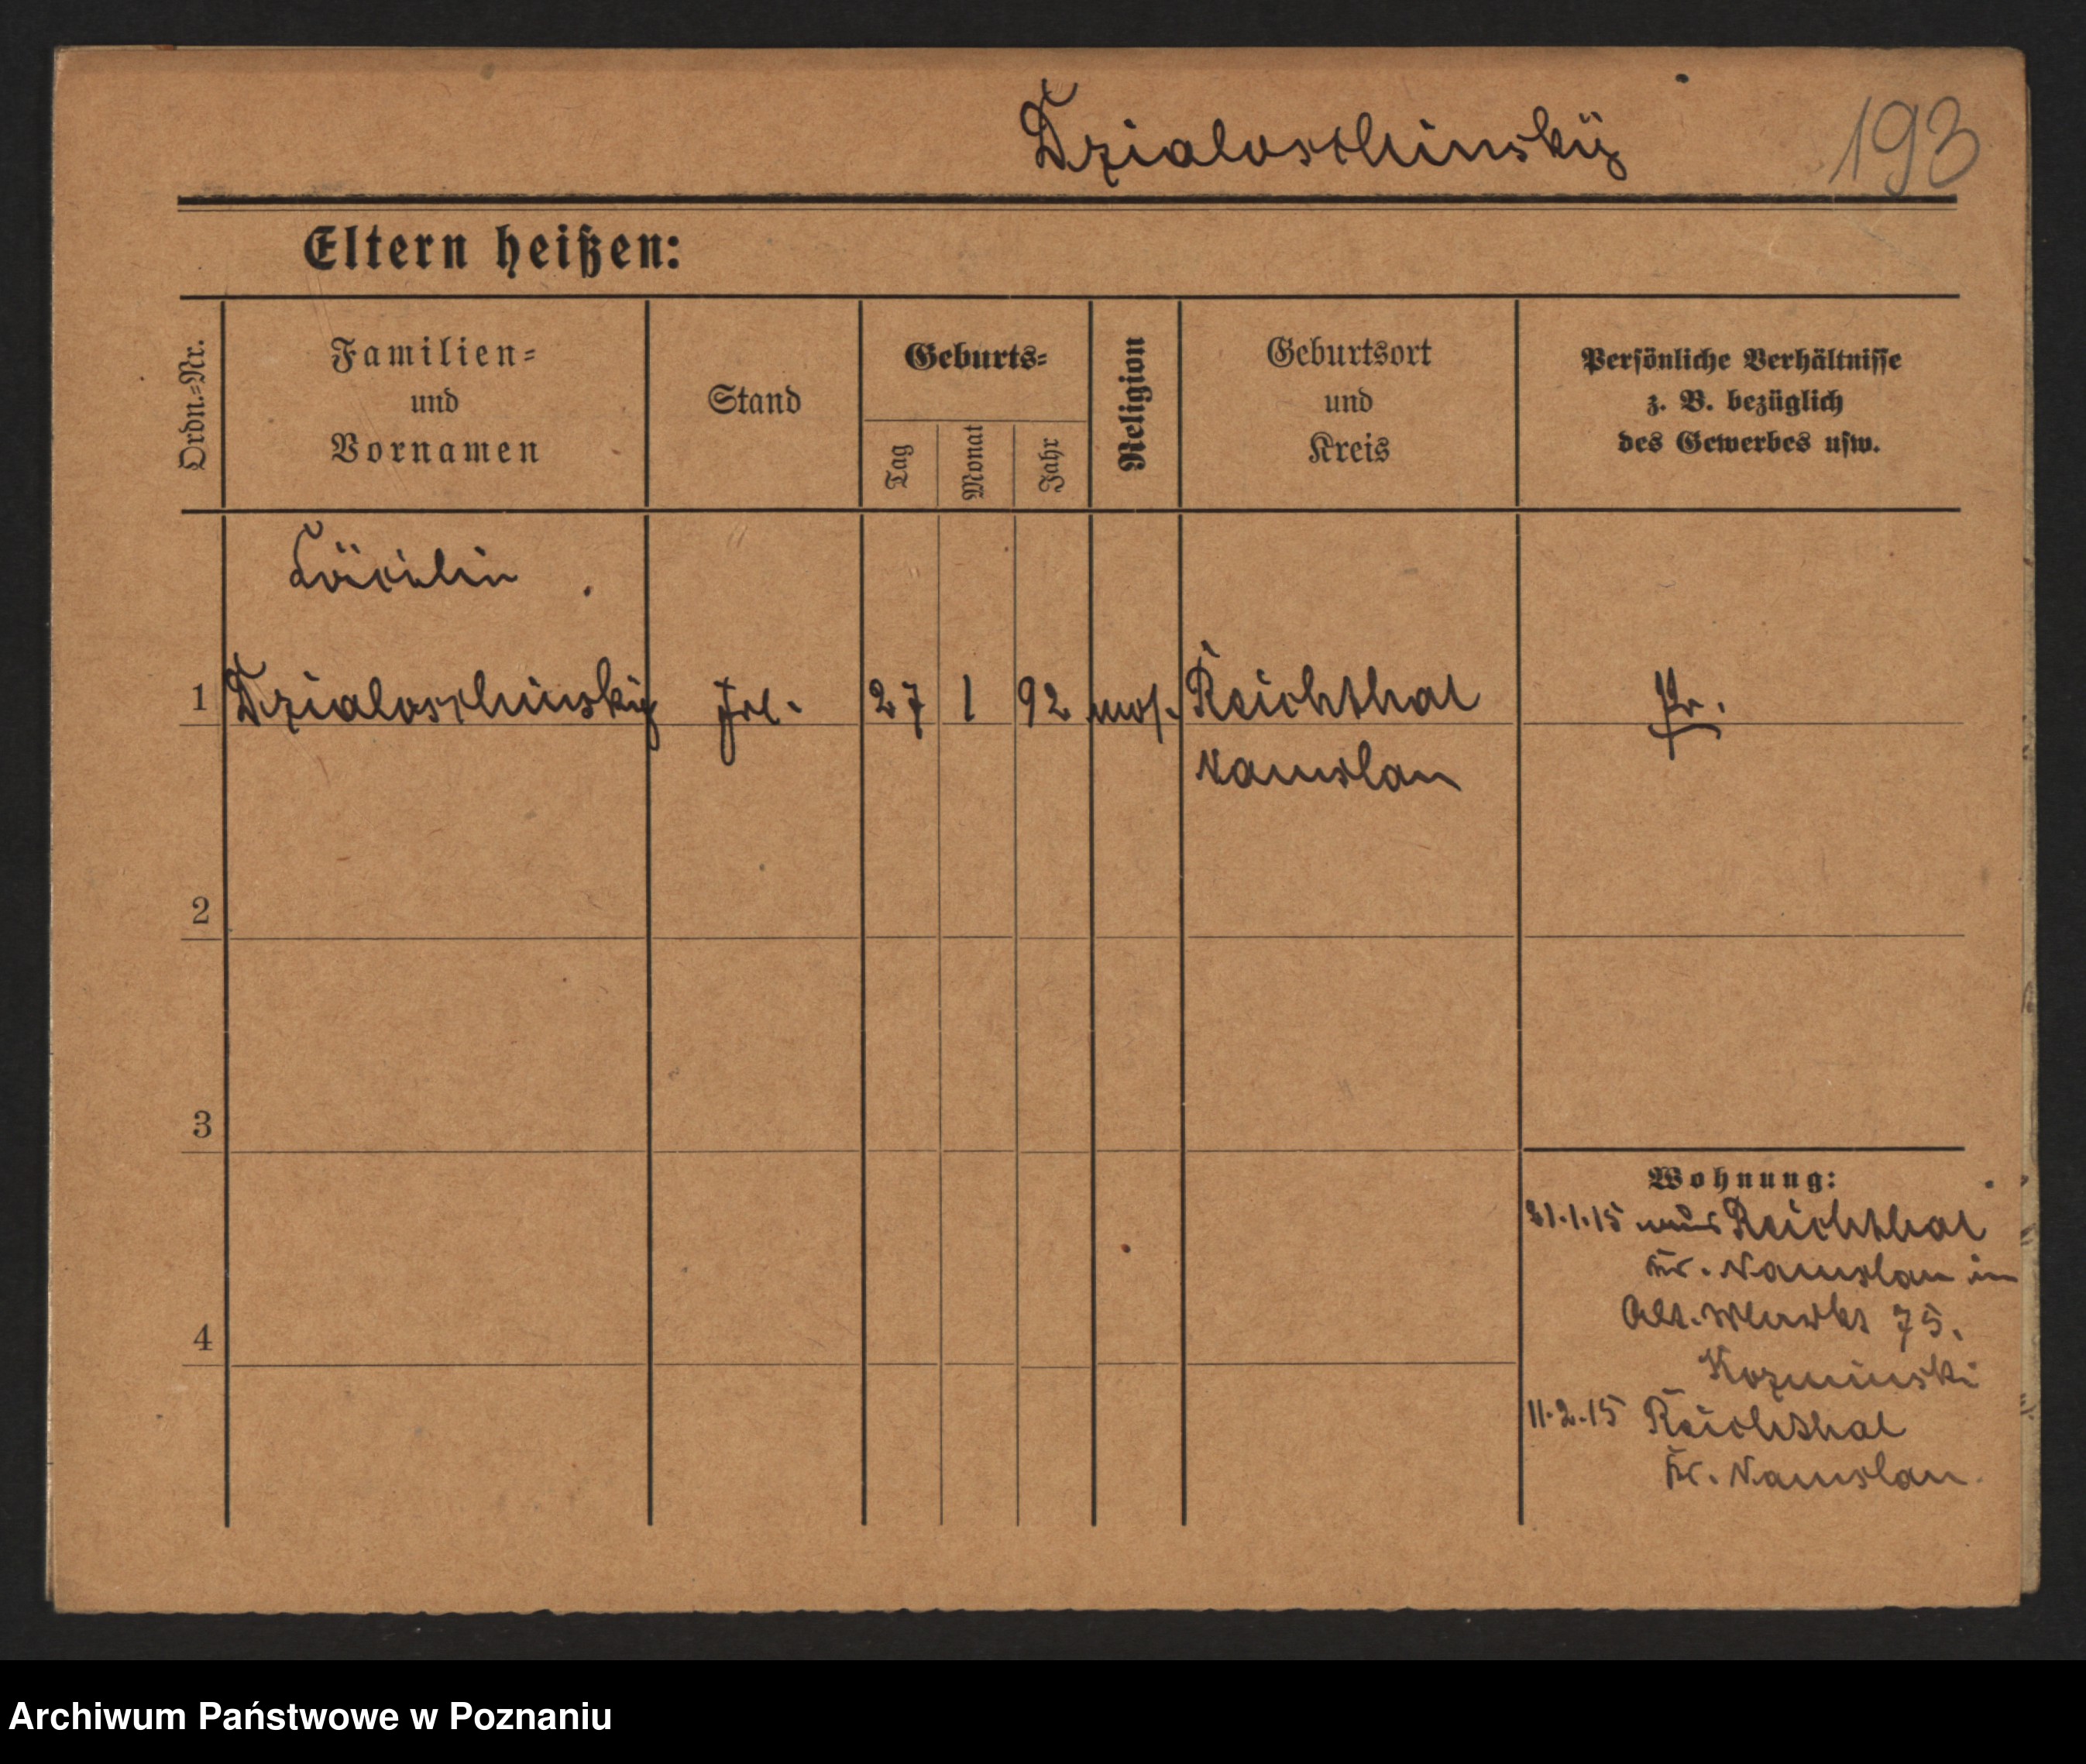 Dzialoschinsky
193
Eltern heißen:
Ordn.-Nr.
Familien-
und
Vornamen
Stand
Geburts-
Tag
Monat
Jahr
Religion
Geburtsort
und
Kreis
Persönliche Verhältnisse
z. B. bezüglich
des Gewerbes usw.
1
Dzialoschinsky
Frl.
27
1
92
mos.
Reichthal
Namslau
Pr.
2
3
4
Wohnung:
21.1.15 aus Reichthal
Kr. Namslau in
Alt. Markt 75.
Kozminski
11.2.15 Reichthal
Kr. Namslau.
Archiwum Państwowe w Poznaniu